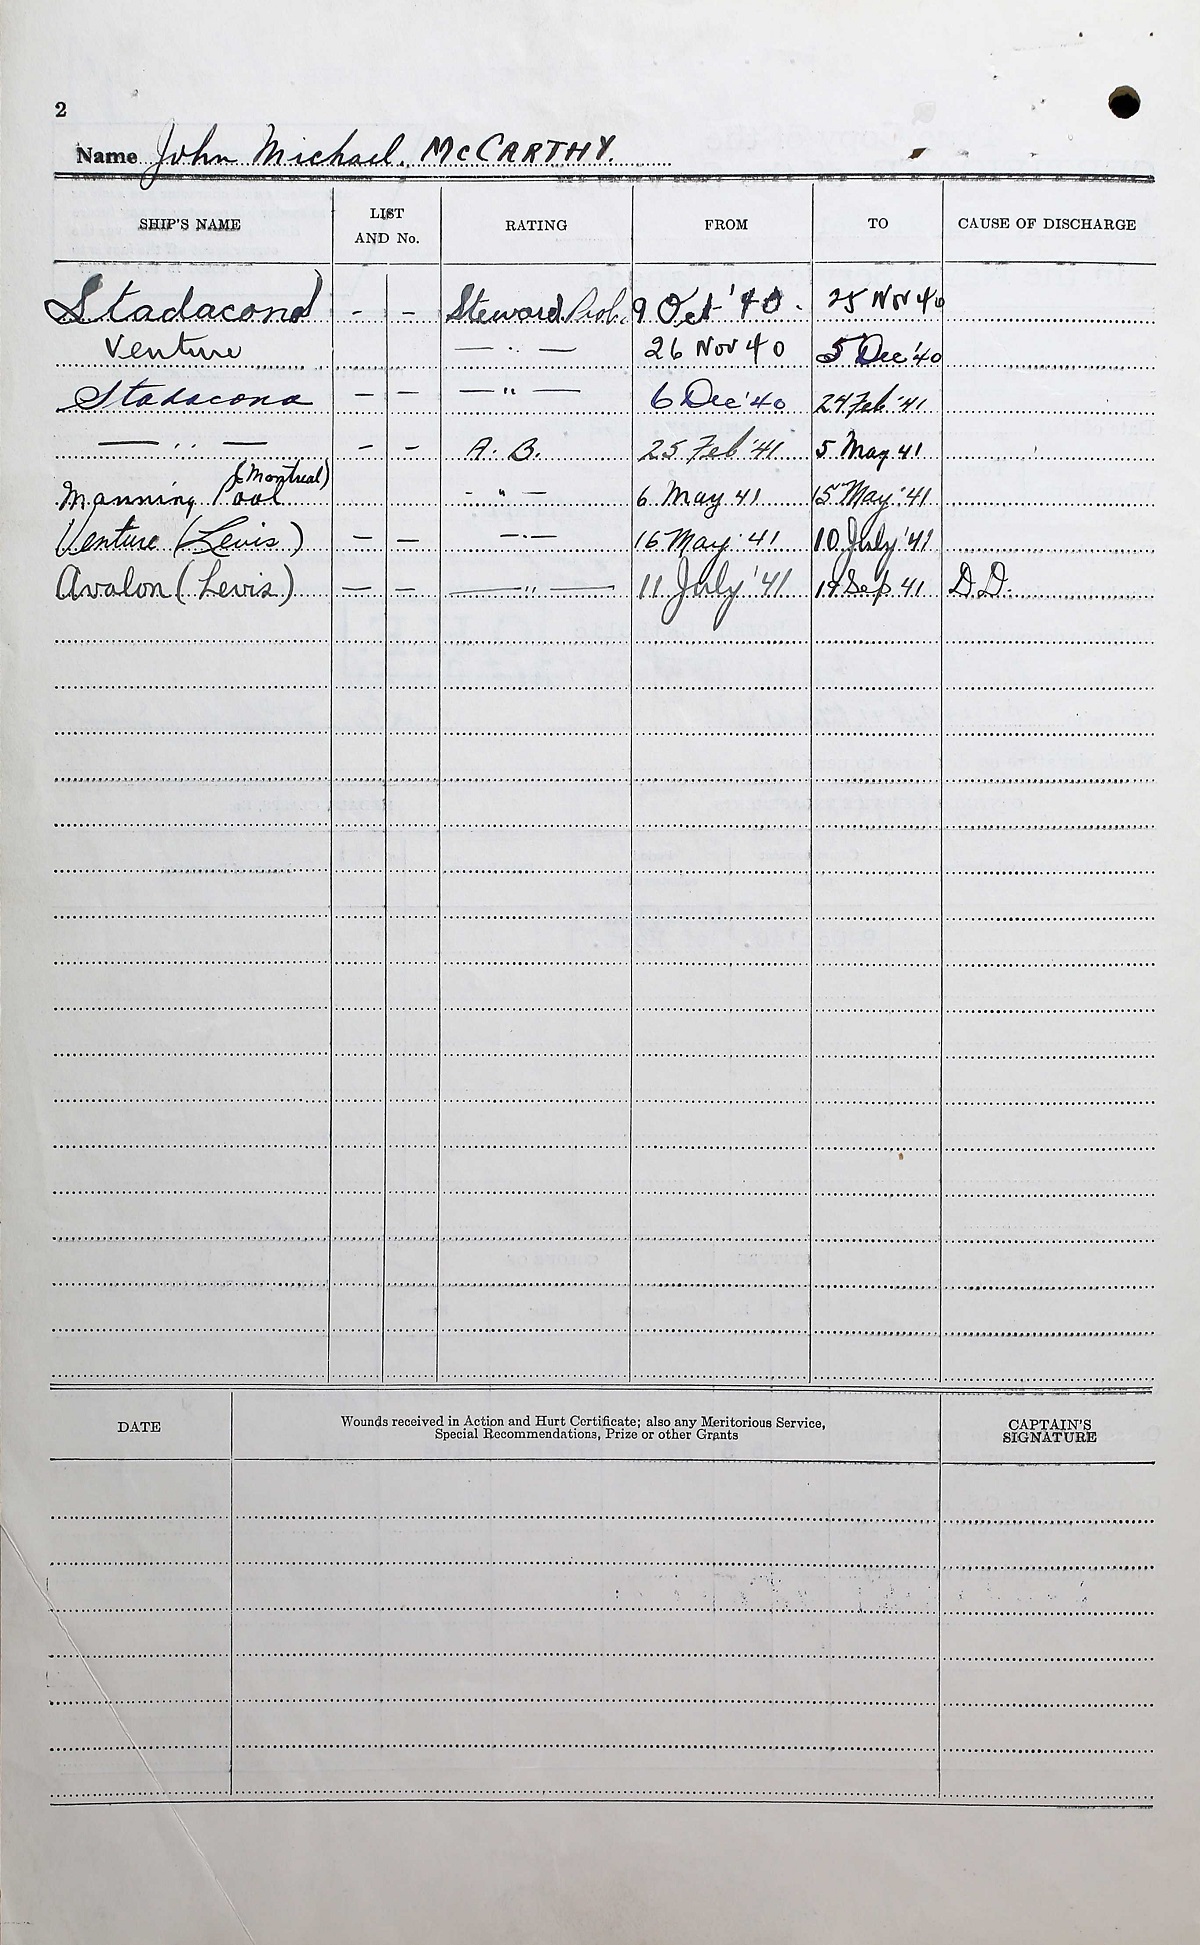 2
Name John Michael. McCARTHY.
SHIP'S NAME LIST AND No. RATING FROM TO CAUSE OF DISCHARGE
Stadacona - - Steward Prob. 9 Oct '40. 25 Nov 40
Venture — " — 26 Nov 40 5 Dec '40
Stadacona — — — " — 6 Dec '40 24 Feb '41
— " — — — A. B. 25 Feb '41 5 May 41
Manning Pool (Montreal) - " - 6 May 41 15 May '41
Venture (Levis) — — — " — 16 May 41 10 July '41
Avalon (Levis) — — — " — 11 July '41 19 Sep 41 D.D.
DATE Wounds received in Action and Hurt Certificate; also any Meritorious Service, CAPTAIN'S
Special Recommendations, Prize or other Grants SIGNATURE